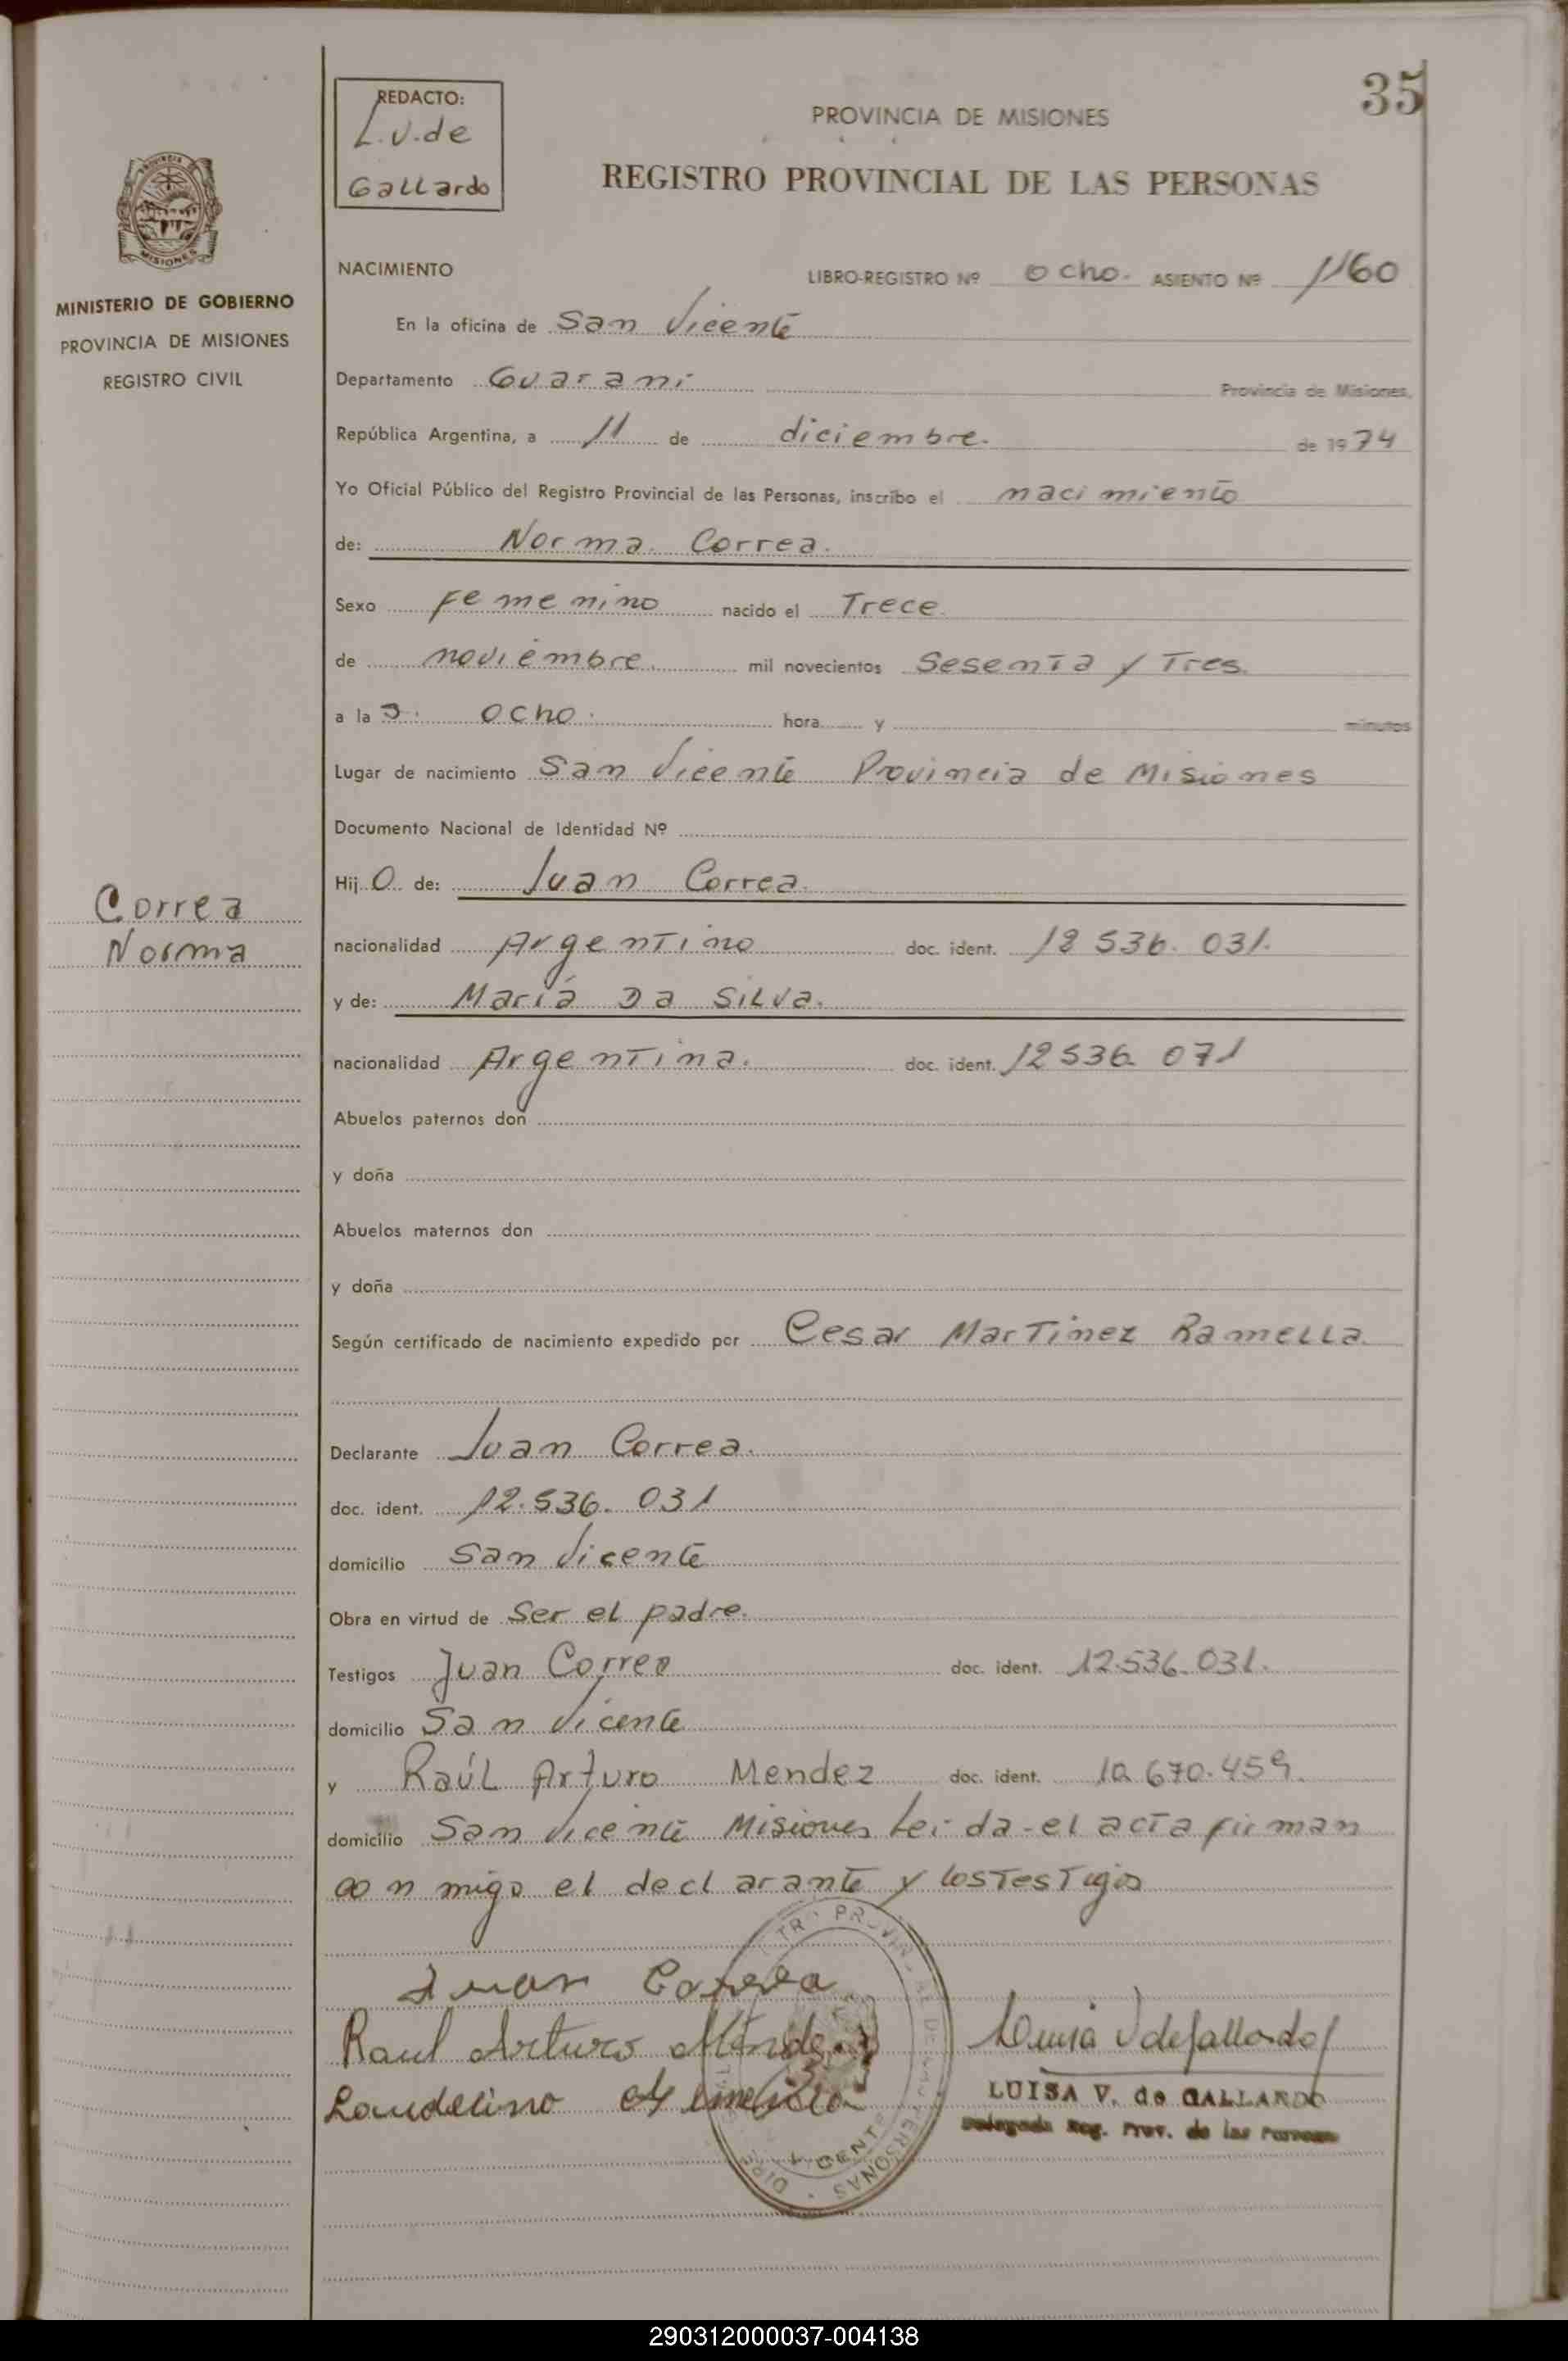 35
REDACTO:
L.V. de
Gallardo
PROVINCIA DE MISIONES
REGISTRO PROVINCIAL DE LAS PERSONAS
MISIONES
MINISTERIO DE GOBIERNO
PROVINCIA DE MISIONES
REGISTRO CIVIL
NACIMIENTO
LIBRO-REGISTRO Nº ocho. ASIENTO Nº 1160
En la oficina de San Vicente
Departamento Guarani Provincia de Misiones,
República Argentina, a 11 de diciembre. de 1974
Yo Oficial Público del Registro Provincial de las Personas, inscribo el nacimiento
de: Norma Correa.
Sexo femenino nacido el Trece
de noviembre. mil novecientos Sesenta y Tres.
a la s. ocho. hora y minutos
Lugar de nacimiento San Vicente Provincia de Misiones
Documento Nacional de Identidad Nº
Hij o de: Juan Correa.
Correa
Norma
nacionalidad Argentino doc. ident. 12 536. 031.
y de: María Da Silva.
nacionalidad Argentina. doc. ident. 12536 071
Abuelos paternos don
y doña
Abuelos maternos don
y doña
Según certificado de nacimiento expedido por Cesar Martinez Ramella.
Declarante Juan Correa.
doc. ident. 12.536. 031
domicilio San Vicente
Obra en virtud de Ser el padre.
Testigos Juan Correa doc. ident. 12.536.031.
domicilio San Vicente
y Raúl Arturo Mendez doc. ident. 10.670.459.
domicilio San Vicente Misiones Lei da-el acta firman
con migo el declarante y los Testigos
Juan Correa
Raul Arturo Méndez
Laudelino
LUISA V. de GALLARDO
Delegada Reg. Prov. de las Personas
290312000037-004138